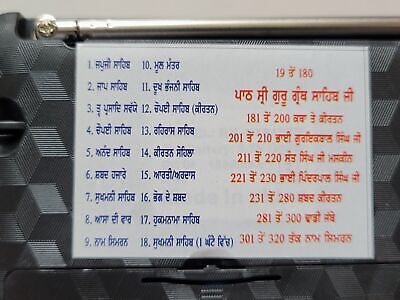 1. ਜਪੁਜੀ ਸਾਹਿਬ
2. ਜਾਪ ਸਾਹਿਬ
3. ਤ੍ਵ ਪ੍ਰਸਾਦਿ ਸਵੱਯੇ
4. ਚੋਪਈ ਸਾਹਿਬ
5. ਅਨੰਦ ਸਾਹਿਬ
6. ਸ਼ਬਦ ਹਜਾਰੇ
7. ਸੁਖਮਨੀ ਸਾਹਿਬ
8. ਆਸਾ ਦੀ ਵਾਰ
9. ਨਾਮ ਸਿਮਰਨ
10. ਮੂਲ ਮੰਤਰ
11. ਦੁਖ ਭੰਜਨੀ ਸਾਹਿਬ
12. ਚੋਪਈ ਸਾਹਿਬ (ਕੀਰਤਨ)
13. ਰਹਿਰਾਸ ਸਾਹਿਬ
14. ਕੀਰਤਨ ਸੋਹਿਲਾ
15. ਆਰਤੀ/ਅਰਦਾਸ
16. ਭੋਗ ਦੇ ਸ਼ਬਦ
17. ਹੁਕਮਨਾਮਾ ਸਾਹਿਬ
18. ਸੁਖਮਨੀ ਸਾਹਿਬ (1 ਘੰਟੇ ਵਿੱਚ)
19 ਤੋਂ 180
ਪਾਠ ਸ਼੍ਰੀ ਗੁਰੂ ਗ੍ਰੰਥ ਸਾਹਿਬ ਜੀ
181 ਤੋਂ 200 ਕਥਾ ਤੇ ਕੀਰਤਨ
201 ਤੋਂ 210 ਭਾਈ ਗੁਰਇਕਬਾਲ ਸਿੰਘ ਜੀ
211 ਤੋਂ 220 ਸੰਤ ਸਿੰਘ ਜੀ ਮਸਕੀਨ
221 ਤੋਂ 230 ਭਾਈ ਪਿੰਦਰਪਾਲ ਸਿੰਘ ਜੀ
231 ਤੋਂ 280 ਸ਼ਬਦ ਕੀਰਤਨ
281 ਤੋਂ 300 ਢਾਡੀ ਜੱਥੇ
301 ਤੋਂ 320 ਤੱਕ ਨਾਮ ਸਿਮਰਨ